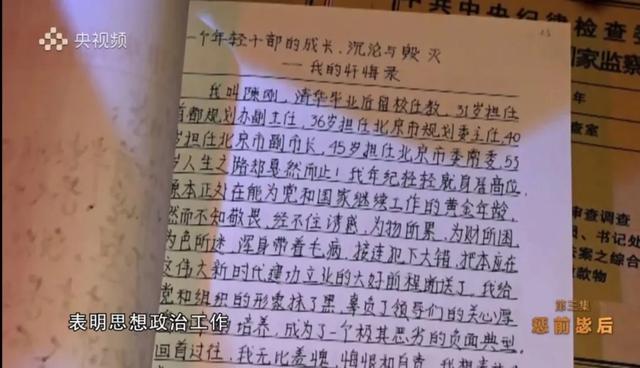 央视频
一个年轻干部的成长、沉沦与毁灭
——我的忏悔录
我叫陈刚,清华毕业后留校任教,31岁担任
首都规划办副主任,36岁担任北京市规划委主任,40
岁担任北京市副市长,45岁担任北京市委常委,53
岁人生之路却戛然而止!我年纪轻轻就身居高位,
原本正处在能为党和国家继续工作的黄金年龄,
然而不知敬畏,经不住诱惑,为物所累,为财所困,
为色所迷,浑身带着毛病,接连犯下大错,把本应在
这伟大新时代建功立业的大好前程断送了,我给
党和组织的形象抹了黑,辜负了领导们的关心厚
培养,成为了一个极其恶劣的负面典型,
回首过往,我无比羞愧,悔恨和自责,我想
中共中央纪律检查委
国家监察
年
查室
审查调查
书记处
案之综合
款物
表明思想政治工作
第三集
惩前毖后